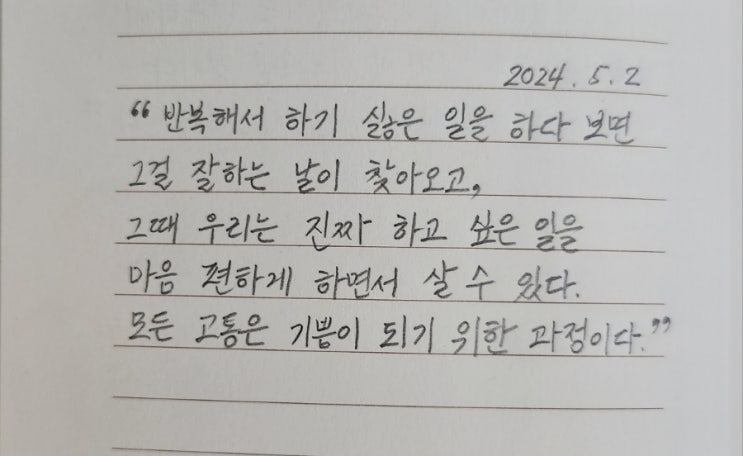 2024. 5. 2
“반복해서 하기 싫은 일을 하다 보면
그걸 잘하는 날이 찾아오고,
그때 우리는 진짜 하고 싶은 일을
마음 편하게 하면서 살 수 있다.
모든 고통은 기쁨이 되기 위한 과정이다.”